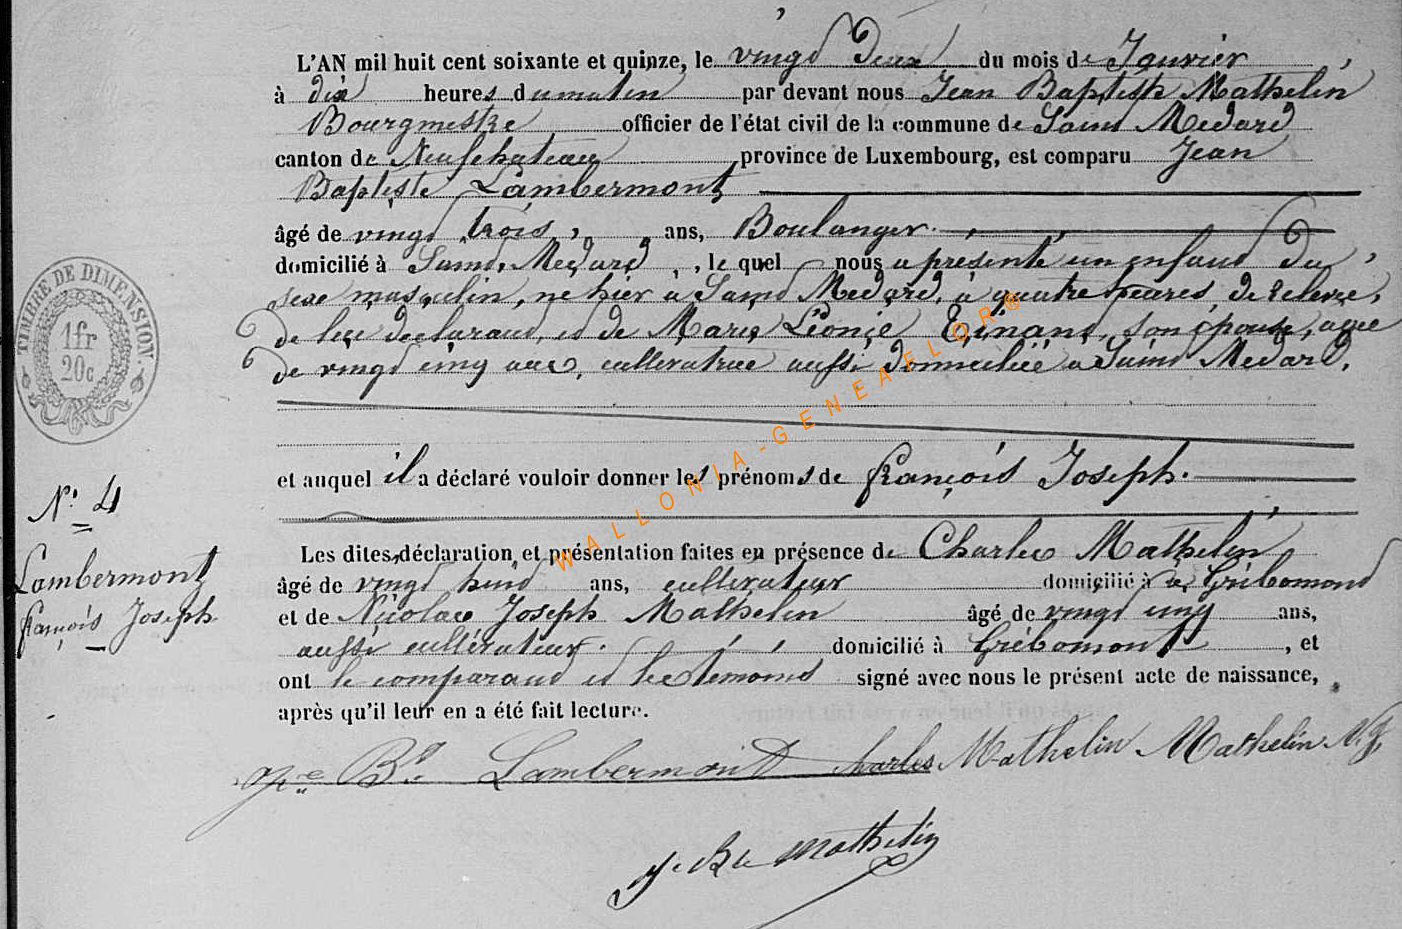 L'AN mil huit cent soixante et quinze, le vingt deux du mois de Janvier
à dix heures du matin par devant nous Jean Baptiste Mathelin
Bourgmestre officier de l'état civil de la commune de Saint Medard
canton de Neufchateau province de Luxembourg, est comparu Jean
Baptiste Lambermont
âgé de vingt trois ans, Boulanger
domicilié à Saint Medard, lequel nous a présenté un enfant du
sexe masculin, né hier à Saint Medard, à quatre heures de relevée,
de lui déclarant, et de Marie Léonie Tinant, son épouse, agée
de vingt cinq ans, cultivatrice aussi domiciliée à Saint Medard.
et auquel il a déclaré vouloir donner les prénoms de françois Joseph.
N° 4
Lambermont
françois Joseph
Les dites déclaration et présentation faites en présence de Charles Mathelin
âgé de vingt huit ans, cultivateur domicilié à Gribomont
et de Nicolas Joseph Mathelin âgé de vingt cinq ans,
aussi cultivateur domicilié à Gribomont, et
ont le comparant et les témoins signé avec nous le présent acte de naissance,
après qu'il leur en a été fait lecture.
Bte Lambermont Charles Mathelin Mathelin N. J.
J. Bte Mathelin
TIMBRE DE DIMENSION
1fr
20c
WALLONIA-GENEAFLOR®